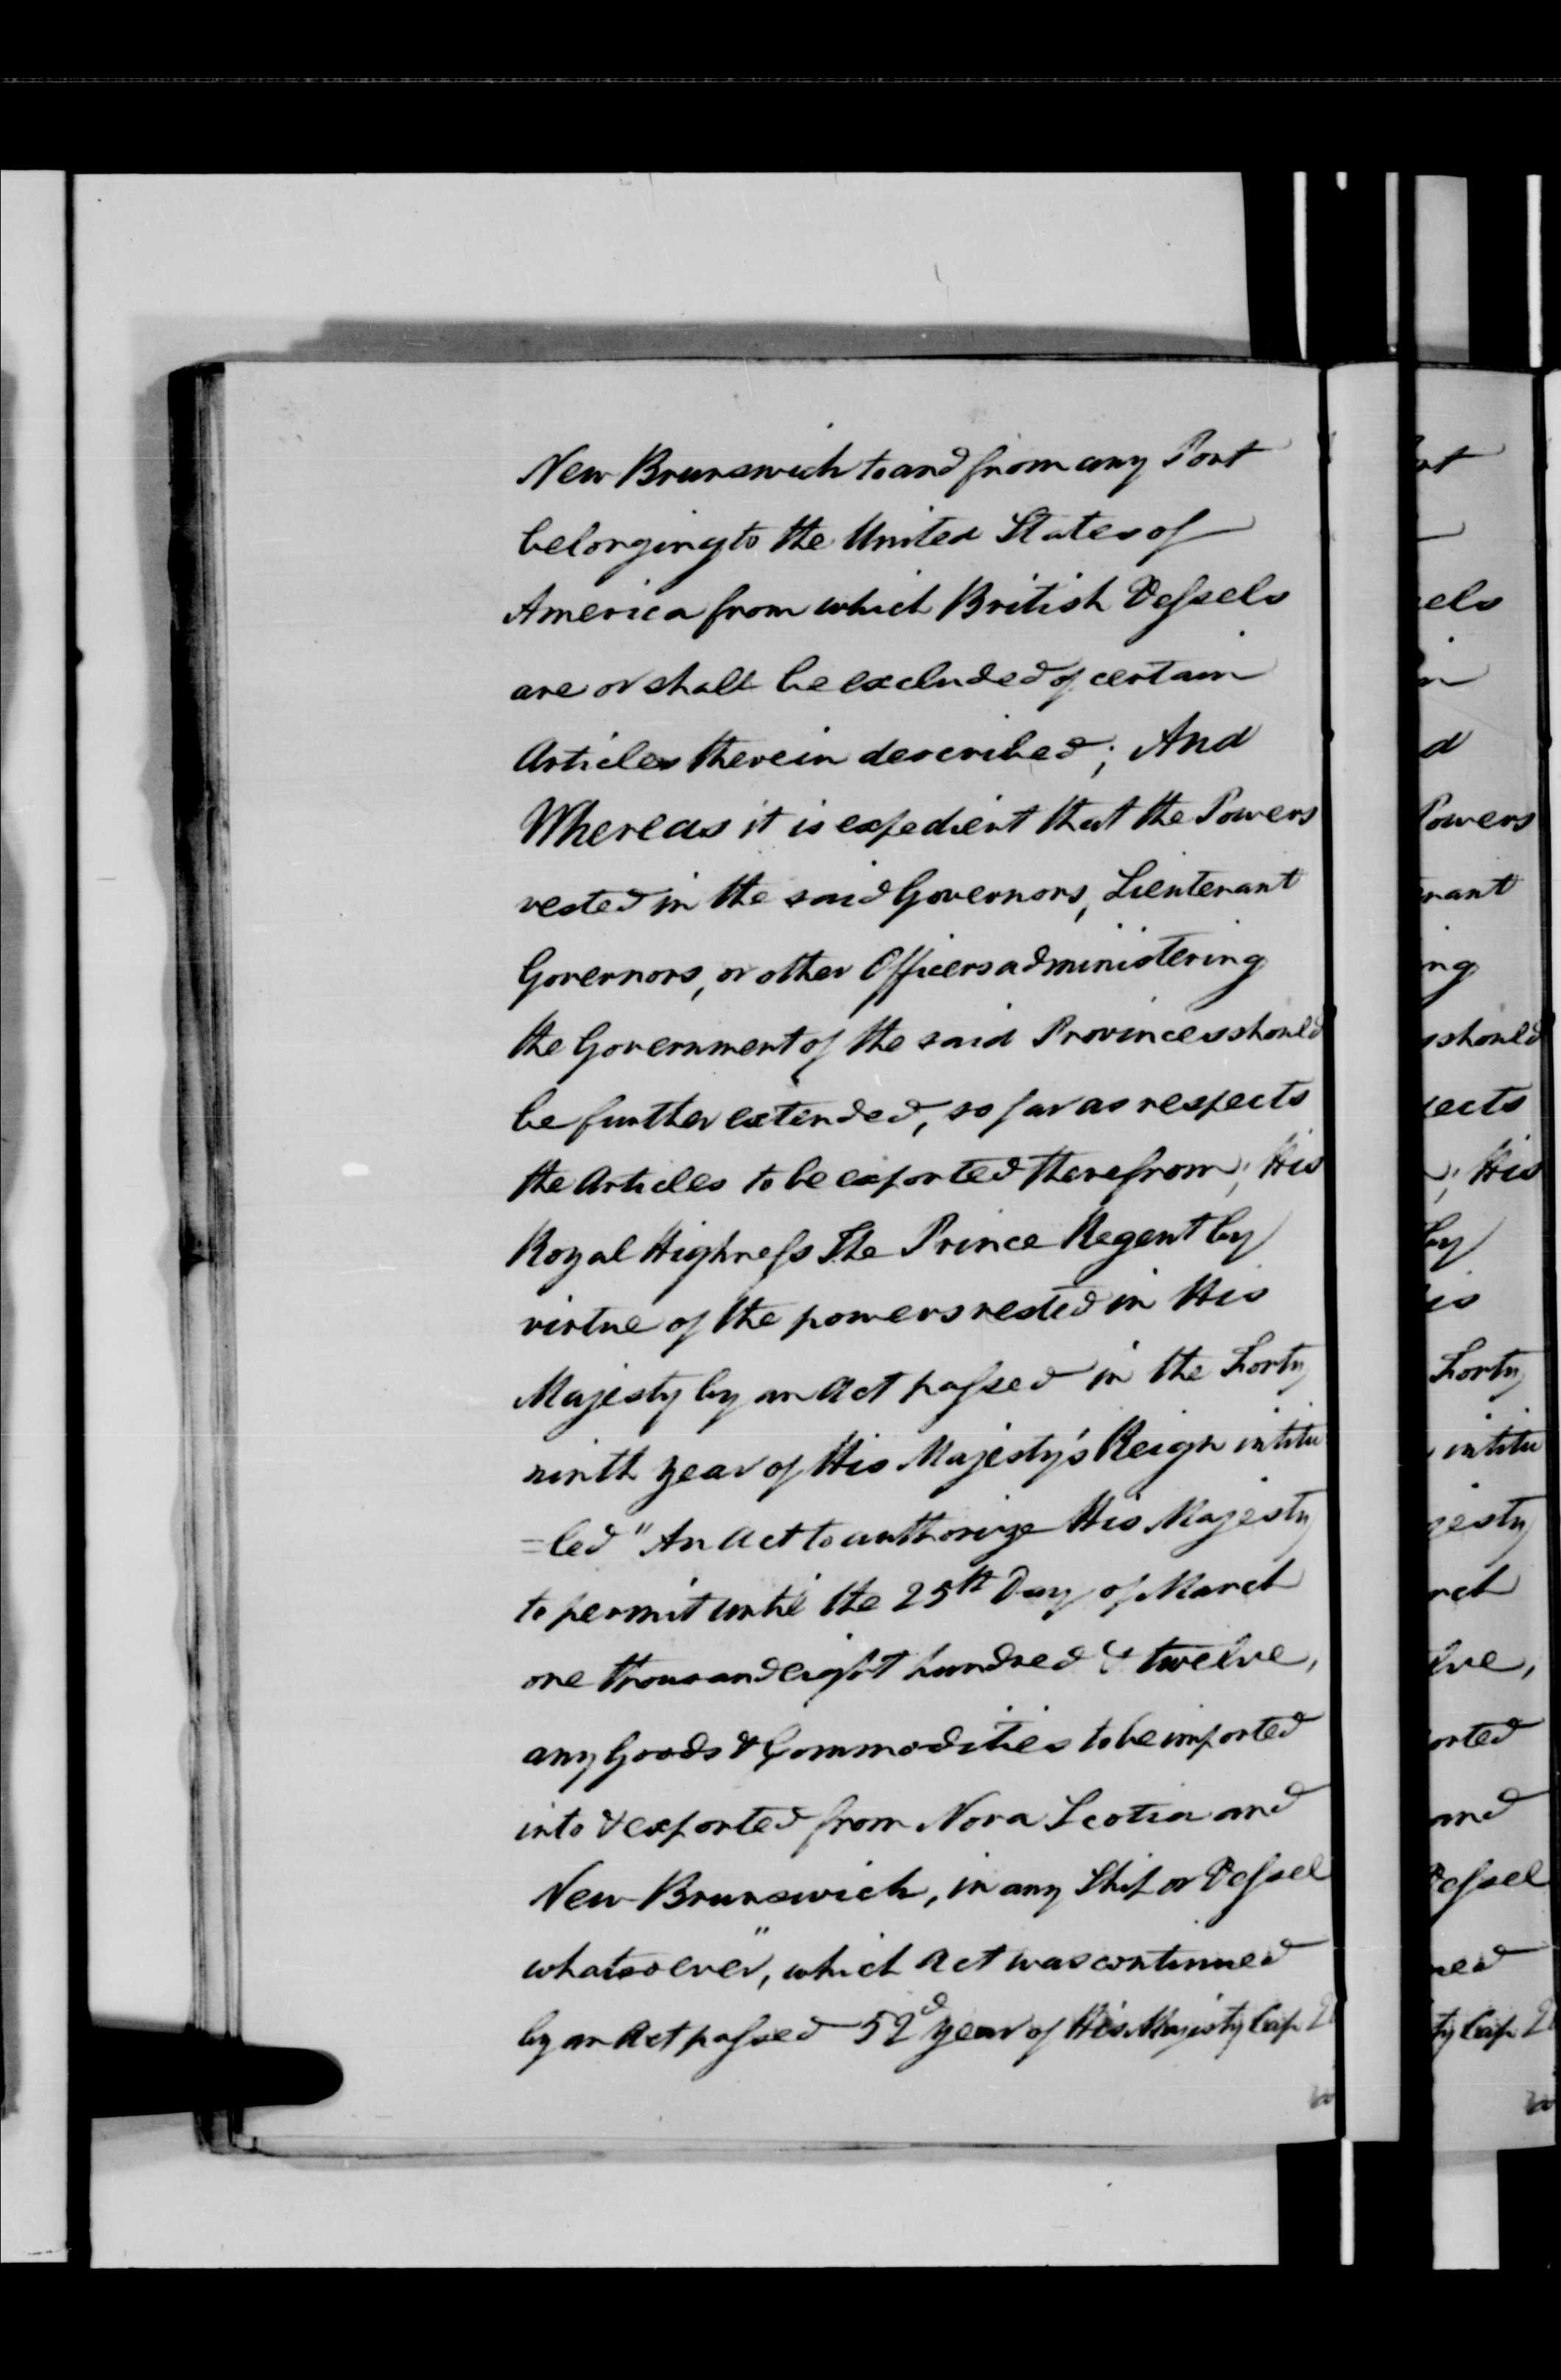 New Brunswick to and from any Port
belonging to the United States of
America from which British Vessels
are or shall be excluded of certain
Articles therein described; And
Whereas it is expedient that the Powers
vested in the said Governors, Lieutenant
Governors, or other Officers administering
the Government of the said Provinces should
be further extended, so far as respects
the Articles to be exported therefrom; His
Royal Highness The Prince Regent by
virtue of the powers vested in His
Majesty by an Act passed in the Forty
ninth year of His Majesty's Reign intitu
=led "An Act to authorize His Majesty
to permit until the 25th Day of March
one thousand eight hundred & twelve,
any Goods & Commodities to be imported
into & exported from Nova Scotia and
New Brunswick, in any Ship or Vessel
whatsoever", which Act was continued
by an Act passed 52d year of His Majesty Cap